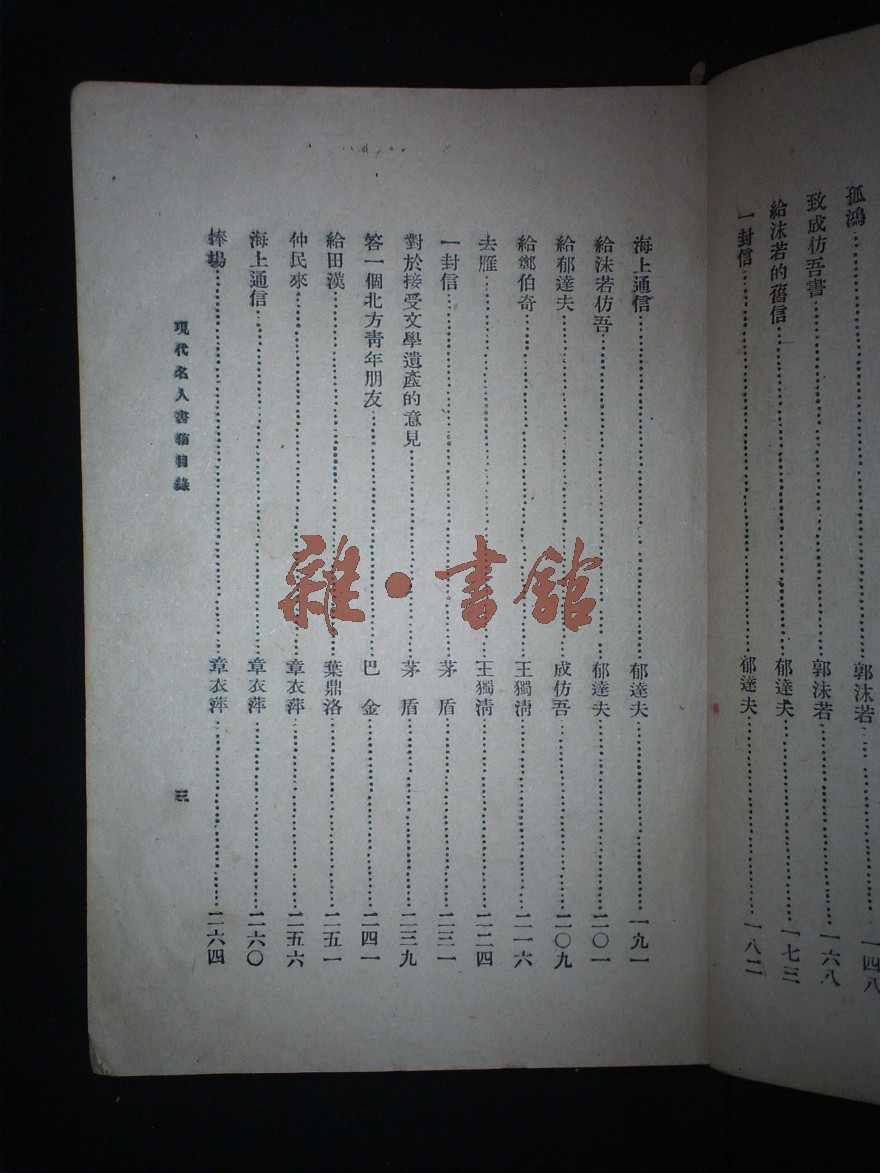 孤鴻……郭沫若……一四八
致成仿吾書……郭沫若……一六八
給沫若的舊信……郁達夫……一七三
一封信……郁達夫……一八二
海上通信……郁達夫……一九一
給沫若仿吾……郁達夫……二〇一
給郁達夫……成仿吾……二〇九
給鄭伯奇……王獨清……二一六
去雁……王獨清……二二四
一封信……茅盾……二三一
對於接受文學遺產的意見……茅盾……二三九
答一個北方青年朋友……巴金……二四一
給田漢……葉鼎洛……二五一
仲民來……章衣萍……二五六
海上通信……章衣萍……二六〇
捧場……章衣萍……二六四
現代名人書信目錄
三
雜·書館